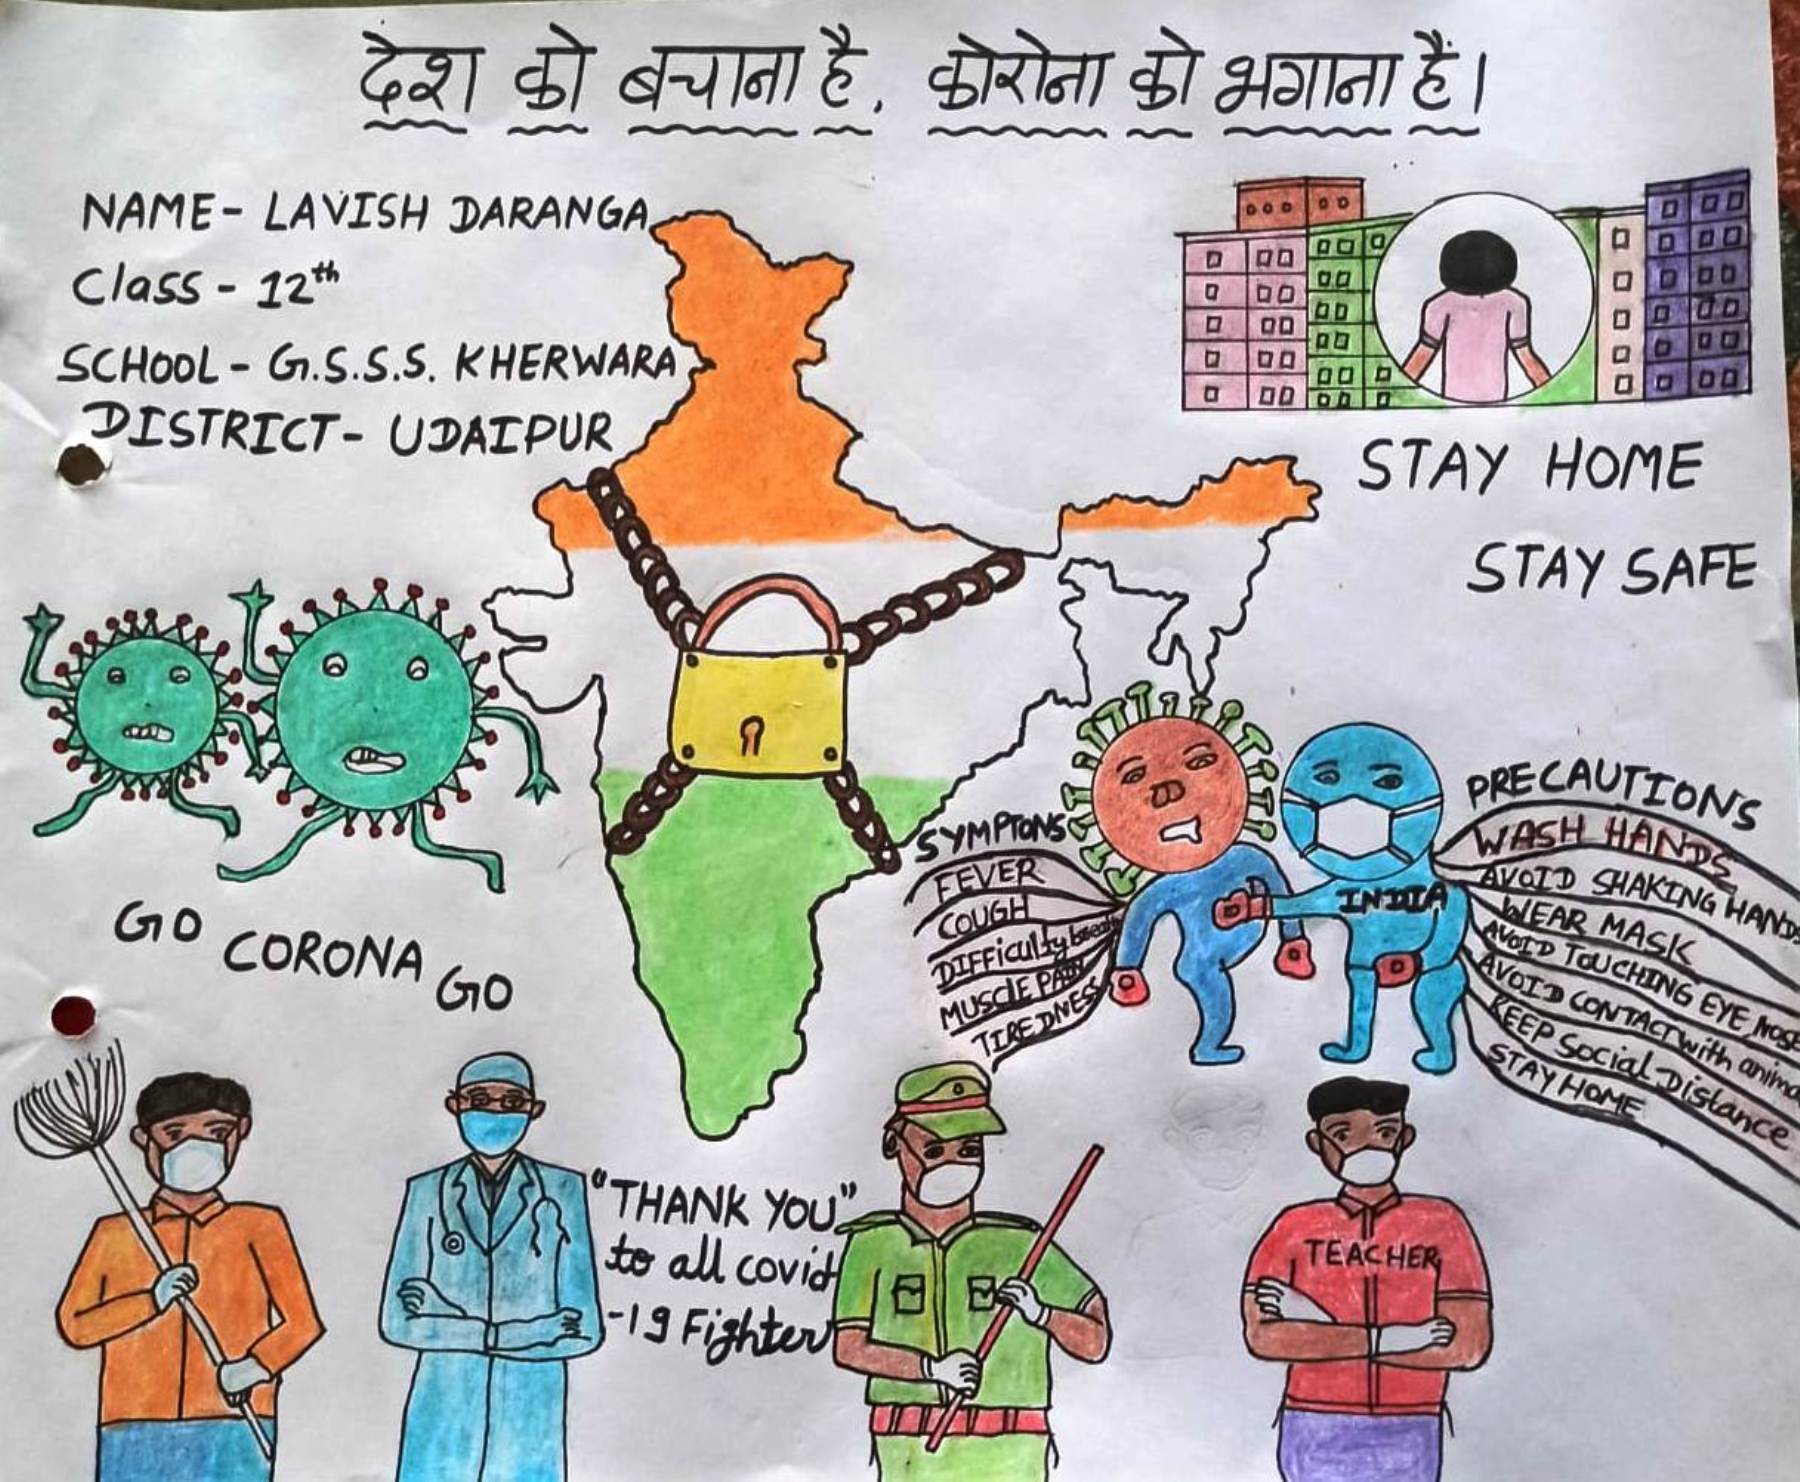 देश को बचाना है, कोरोना को भगाना हैं।
NAME- LAVISH DARANGA
Class - 12th
SCHOOL - G.S.S.S. KHERWARA
DISTRICT- UDAIPUR
STAY HOME
STAY SAFE
GO CORONA GO
SYMPTONS
FEVER
COUGH
DIFFiculty breath
MUSCLE PAIN
TIREDNESS
INDIA
PRECAUTIONS
WASH HANDS
AVOID SHAKING HANDS
WEAR MASK
AVOID TOUCHING EYE, NOSE
AVOID CONTACT with anima
KEEP Social Distance
STAY HOME
"THANK YOU"
to all covid
-19 Fighter
TEACHER